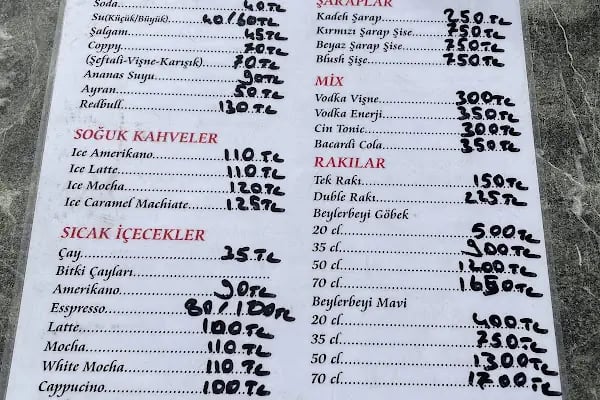 Soda 40 TL
Su(Küçük/Büyük) 40/60 TL
Şalgam 45 TL
Coppy 70 TL
(Şeftali-Vişne-Karışık) 70 TL
Ananas Suyu 90 TL
Ayran 50 TL
Redbull 130 TL
SOĞUK KAHVELER
Ice Amerikano 110 TL
Ice Latte 110 TL
Ice Mocha 120 TL
Ice Caramel Machiate 125 TL
SICAK İÇECEKLER
Çay 25 TL
Bitki Çayları
Amerikano 90 TL
Esspresso 80/100 TL
Latte 100 TL
Mocha 110 TL
White Mocha 110 TL
Cappucino 100 TL
ŞARAPLAR
Kadeh Şarap 250 TL
Kırmızı Şarap Şise 750 TL
Beyaz Şarap Şise 750 TL
Blush Şişe 750 TL
MİX
Vodka Vişne 300 TL
Vodka Enerji 350 TL
Cin Tonic 300 TL
Bacardi Cola 350 TL
RAKILAR
Tek Rakı 150 TL
Duble Rakı 225 TL
Beylerbeyi Göbek
20 cl 500 TL
35 cl 900 TL
50 cl 1200 TL
70 cl 1650 TL
Beylerbeyi Mavi
20 cl 400 TL
35 cl 750 TL
50 cl 1300 TL
70 cl 1700 TL